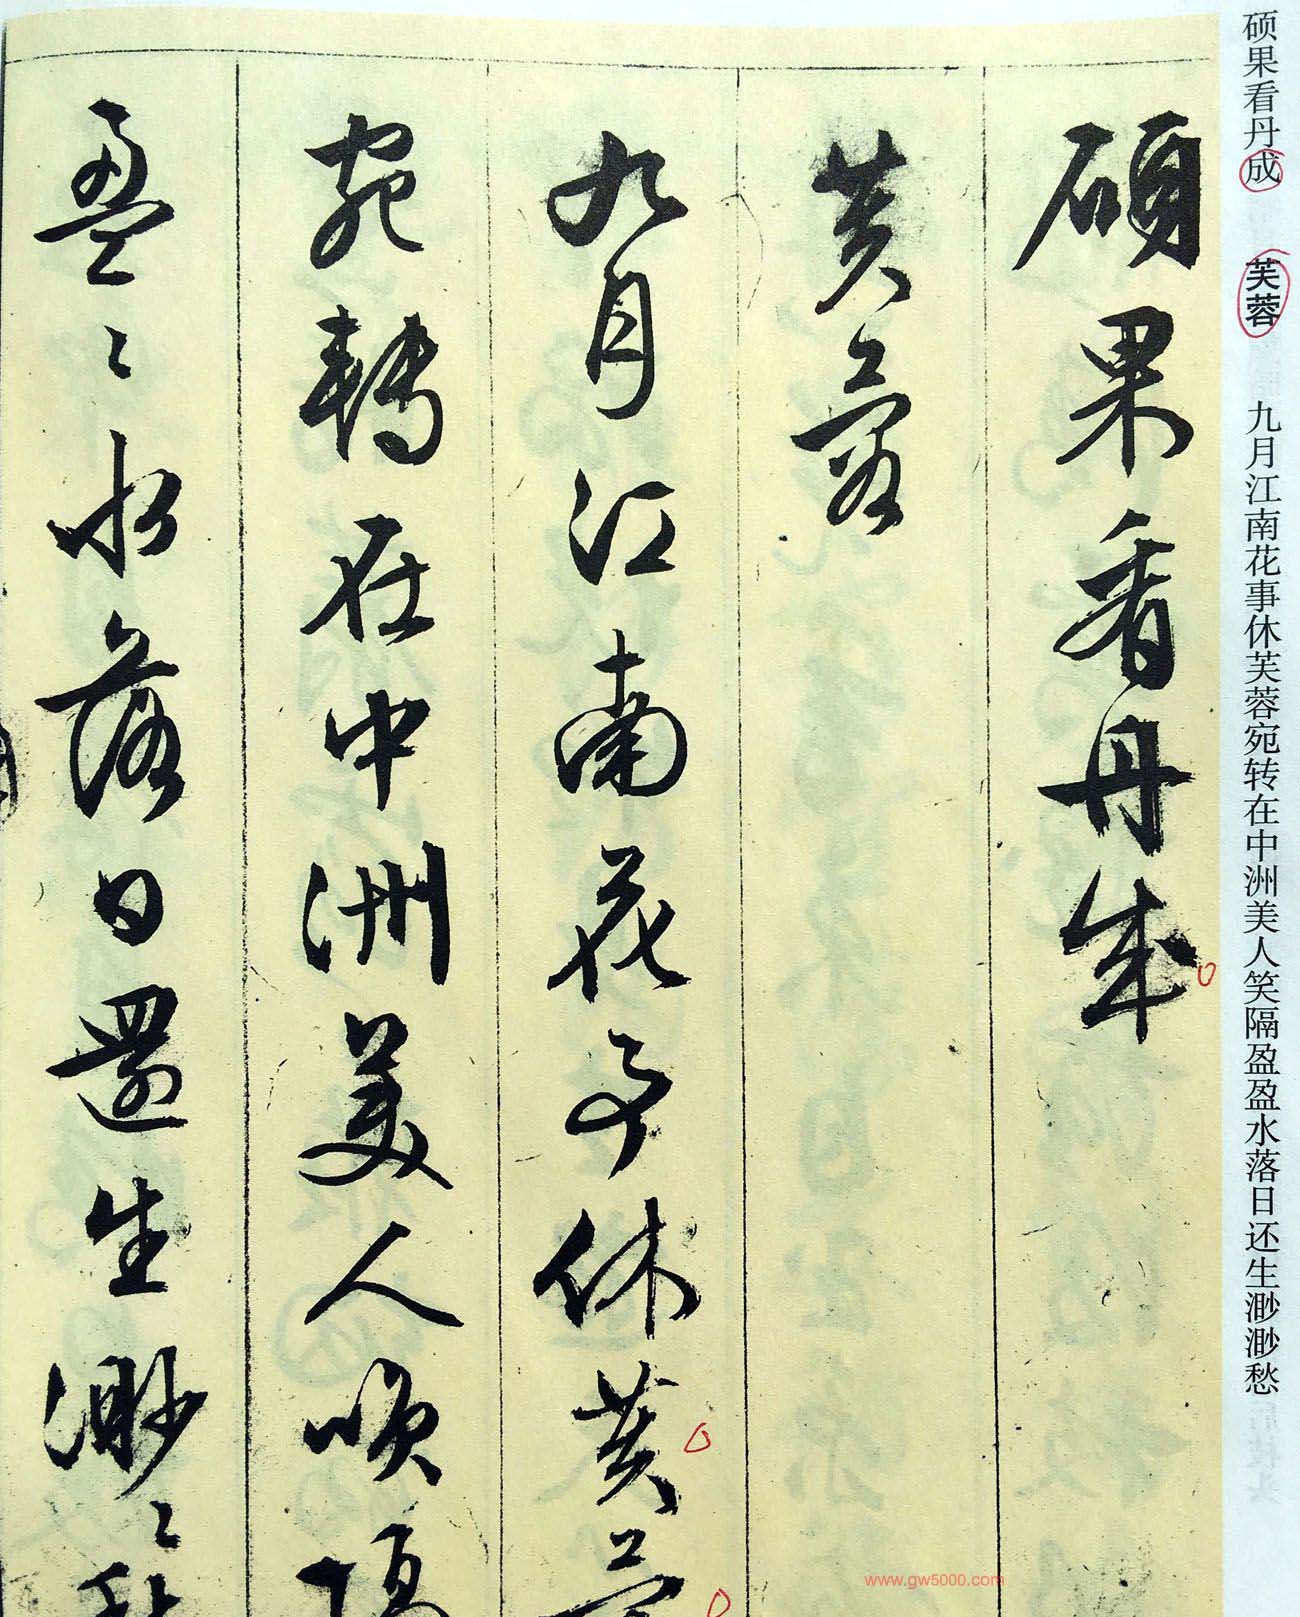 硕果看丹成 芙蓉 九月江南花事休芙蓉宛转在中洲美人笑隔盈盈水落日还生渺渺愁
碩果看丹成
芙蓉
九月江南花事休芙蓉
宛轉在中洲美人咲隔
盈〻水落日還生渺〻愁
www.gw5000.com